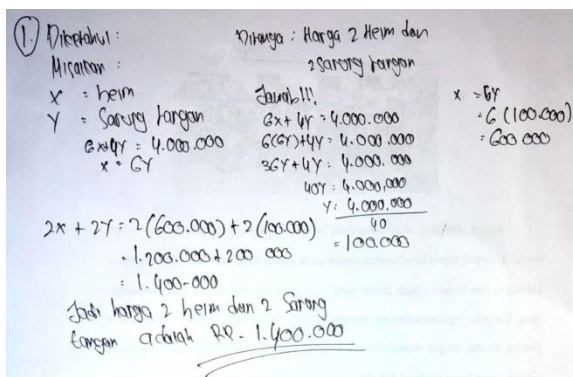 1. Diketahui :
Misalkan :
X = heim
Y = Sarung tangan
6x+4Y = 4.000.000
X = 6Y
Ditanya : Harga 2 Heim dan
2 Sarung tangan
Jawab!!!
6x + 4Y = 4.000.000
6(6Y)+4Y = 4.000.000
36Y+4Y = 4.000.000
40Y = 4.000.000
Y = 4.000.000
40
= 100.000
X = 6Y
= 6 (100.000)
= 600.000
2x + 2Y = 2(600.000) + 2(100.000)
= 1.200.000 + 200 000
= 1.400.000
Jadi harga 2 heim dan 2 Sarung
tangan adalah RP. 1.400.000